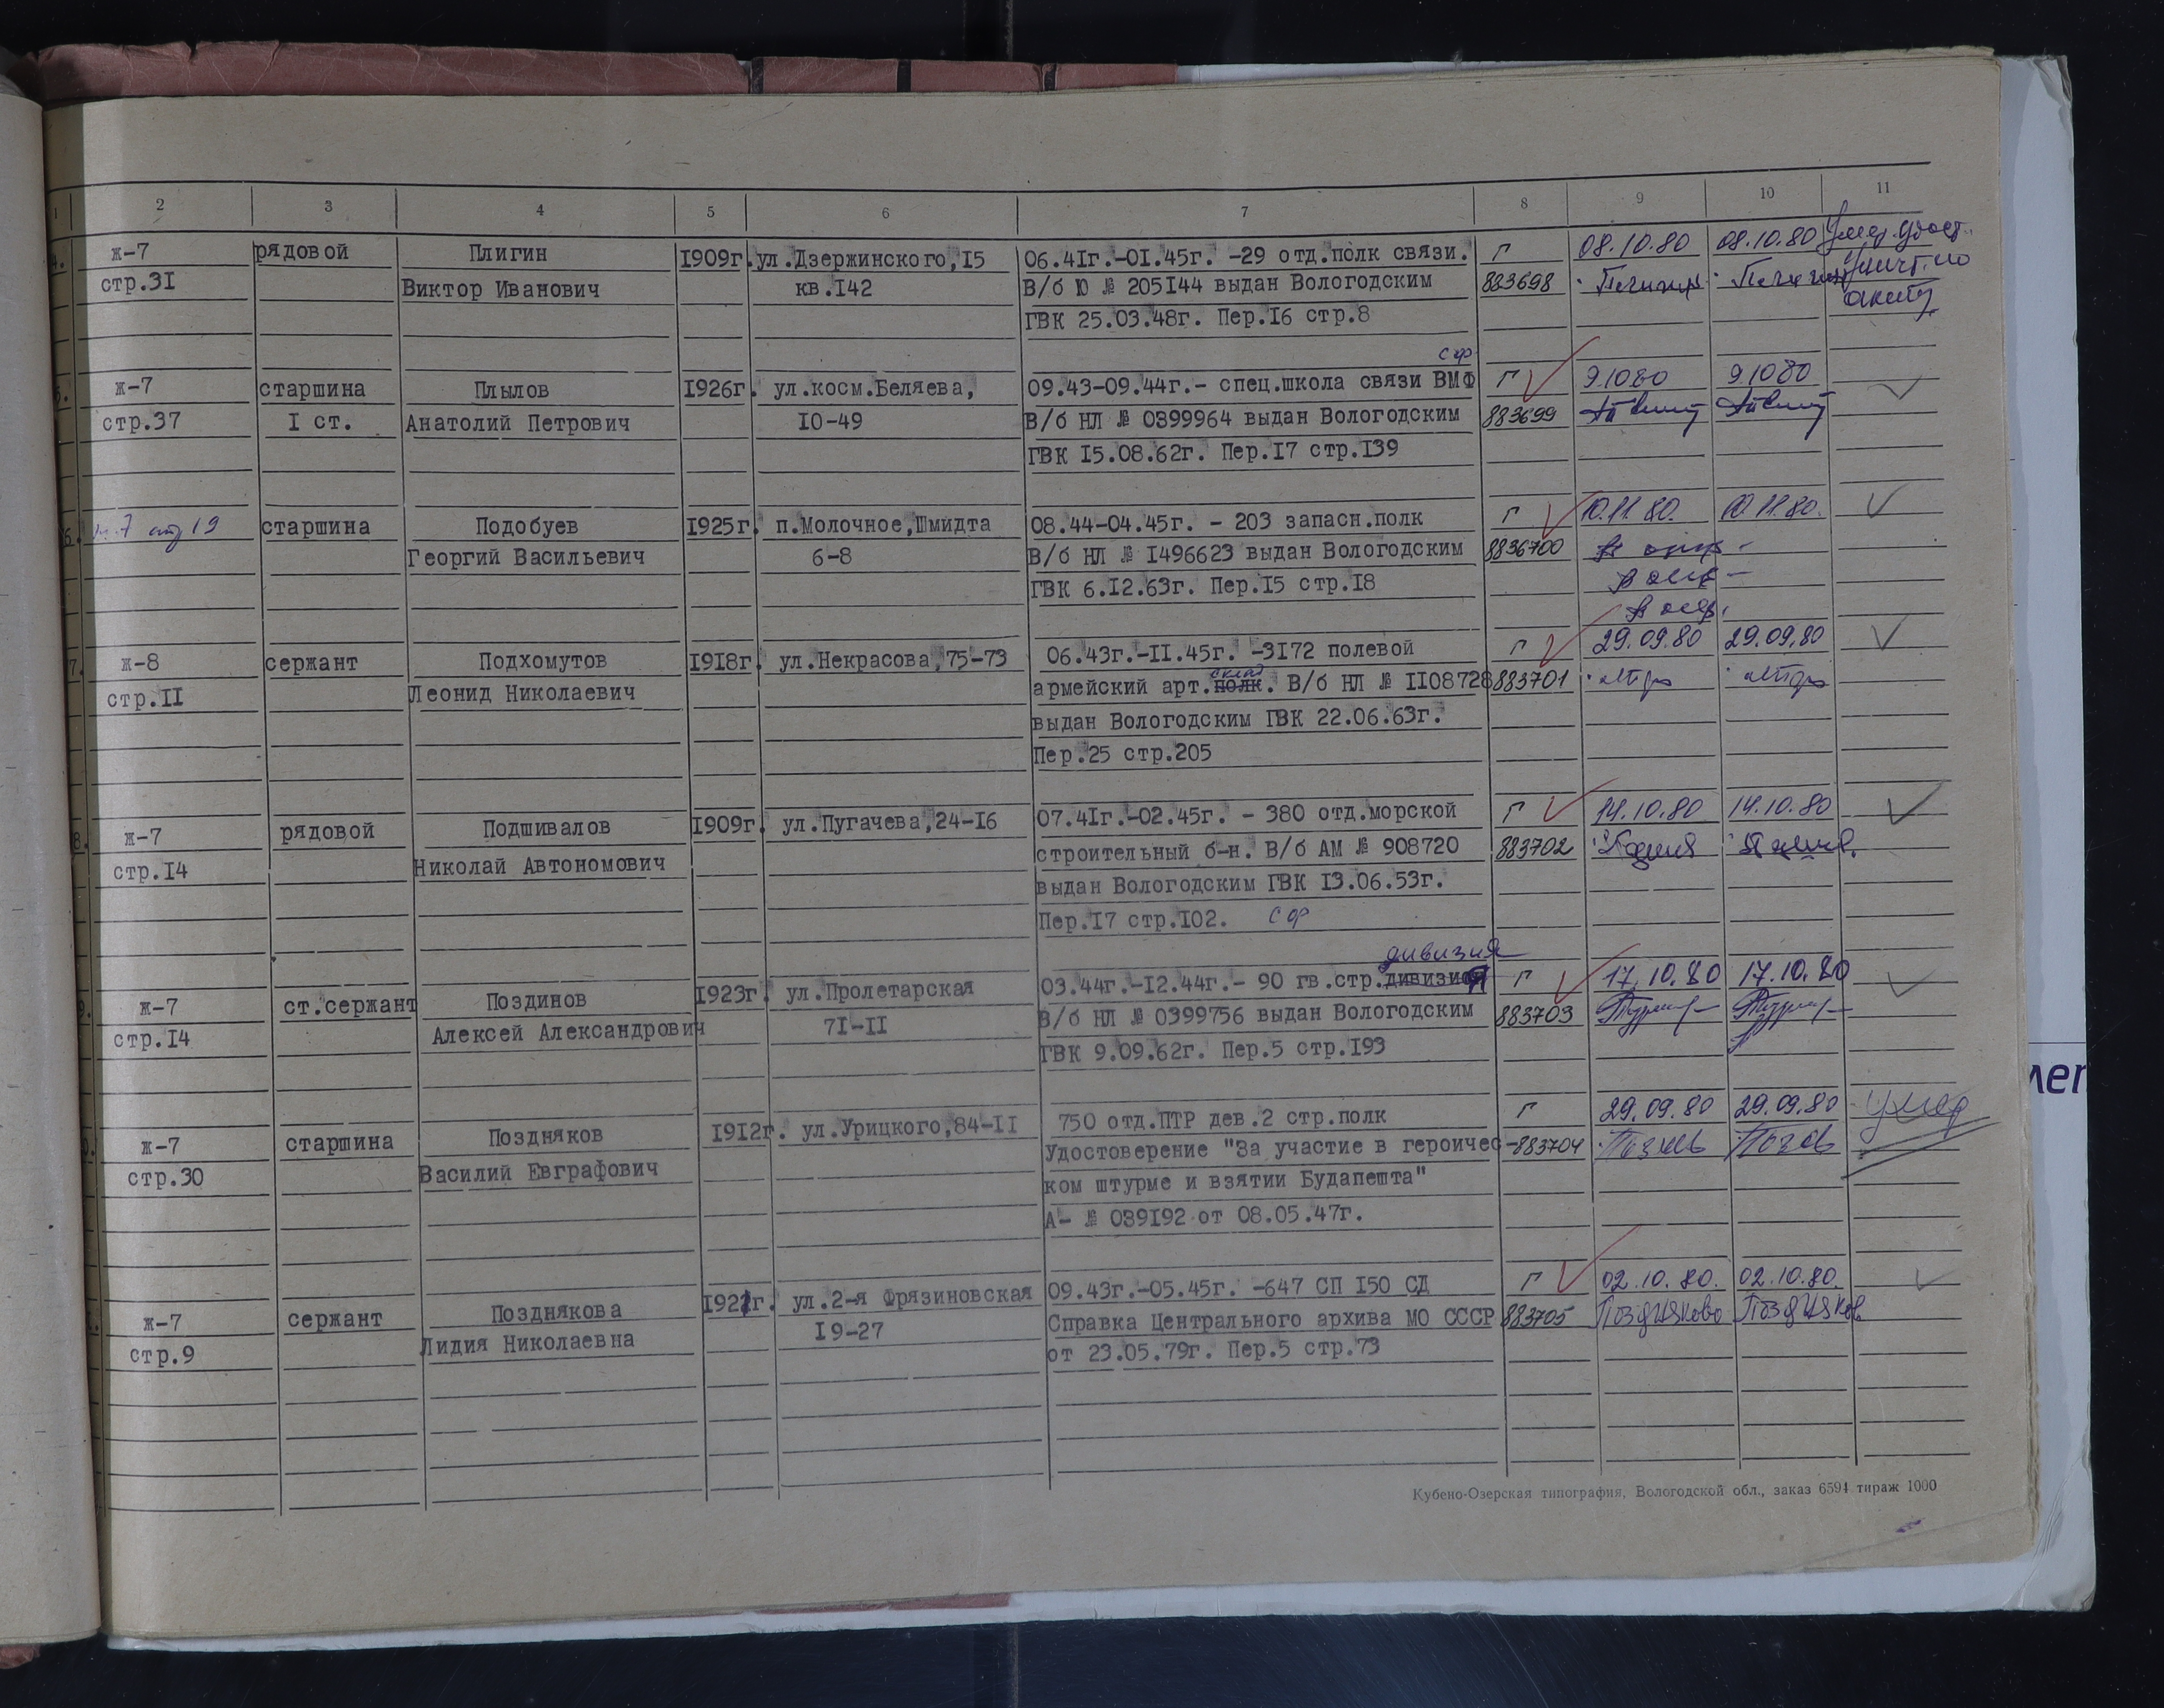 1 2 3 4 5 6 7 8 9 10 11
4. ж-7 рядовой Плигин 1909г. ул.Дзержинского,15 06.41г.-01.45г. -29 отд.полк связи. Г 08.10.80 08.10.80
стр.31 Виктор Иванович кв.142 В/б Ю № 205144 выдан Вологодским 883698
акту
ГВК 25.03.48г. Пер.16 стр.8
СФ
5. ж-7 старшина Плылов 1926г. ул.косм.Беляева, 09.43-09.44г.- спец.школа связи ВМФ Г 9.10.80 9.10.80
стр.37 1 ст. Анатолий Петрович 10-49 В/б НЛ № 0399964 выдан Вологодским 883699
ГВК 15.08.62г. Пер.17 стр.139
6. стр 19 старшина Подобуев 1925г. п.Молочное,Шмидта 08.44-04.45г. - 203 запасн.полк Г 10.11.80. 10.11.80.
Георгий Васильевич 6-8 В/б НЛ № 1496623 выдан Вологодским 8836700
ГВК 6.12.63г. Пер.15 стр.18
7. ж-8 сержант Подхомутов 1918г. ул.Некрасова,75-73 06.43г.-11.45г. -3172 полевой Г 29.09.80 29.09.80
склад
стр.11 Леонид Николаевич армейский арт.полк. В/б НЛ № 1108728 883701
выдан Вологодским ГВК 22.06.63г.
Пер.25 стр.205
8. ж-7 рядовой Подшивалов 1909г. ул.Пугачева,24-16 07.41г.-02.45г. - 380 отд.морской Г 14.10.80 14.10.80
стр.14 Николай Автономович строительный б-н. В/б АМ № 908720 883702
выдан Вологодским ГВК 13.06.53г.
Пер.17 стр.102. СФ
дивизия
9. ж-7 ст.сержант Поздинов 1923г. ул.Пролетарская 03.44г.-12.44г.- 90 гв.стр.дивизия Г 17.10.80 17.10.80
стр.14 Алексей Александрович 71-11 В/б НЛ № 0399756 выдан Вологодским 883703
ГВК 9.09.62г. Пер.5 стр.193
ж-7 старшина Поздняков 1912г. ул.Урицкого,84-11 750 отд.ПТР дев.2 стр.полк Г 29.09.80 29.09.80 умер
стр.30 Василий Евграфович Удостоверение "За участие в героичес- 883704
ком штурме и взятии Будапешта"
А- № 039192 от 08.05.47г.
ж-7 сержант Позднякова 1921г. ул.2-я Фрязиновская 09.43г.-05.45г. -647 СП 150 СД Г 02.10.80. 02.10.80.
стр.9 Лидия Николаевна 19-27 Справка Центрального архива МО СССР 883705 Позднякова Поздняков
от 23.05.79г. Пер.5 стр.73
Кубено-Озерская типография, Вологодской обл., заказ 6594 тираж 1000